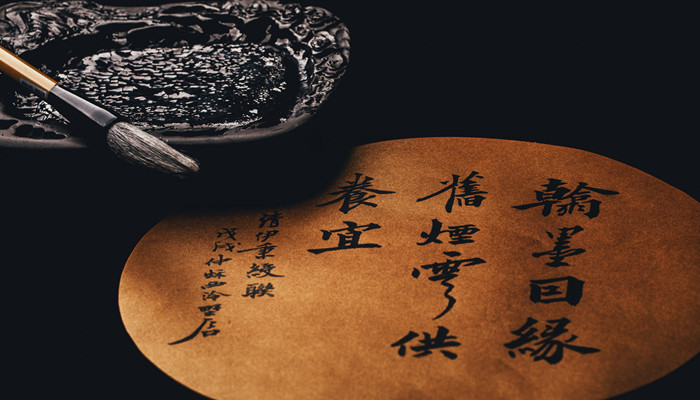 翰墨因緣
舊煙雲供
養宜
清伊秉綬聯
戊戌仲秋西泠